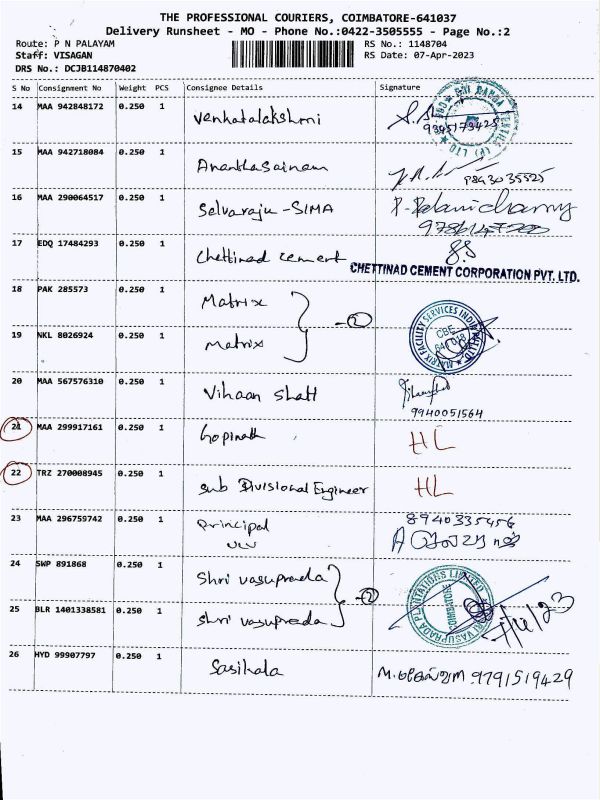 THE PROFESSIONAL COURIERS, COIMBATORE-641037
Delivery Runsheet - MO - Phone No.:0422-3505555 - Page No.:2
Route: P N PALAYAM RS No.: 1148704
Staff: VISAGAN RS Date: 07-Apr-2023
DRS No.: DCJB114870402
S No Consignment No Weight PCS Consignee Details Signature
14 MAA 942848172 0.250 1 Venkatalakshmi
9345173425
15 MAA 942718084 0.250 1
16 MAA 290064517 0.250 1 Selvaraju - SIMA P. Palanichamy
17 EDQ 17484293 0.250 1 Chettinad cement
CHETTINAD CEMENT CORPORATION PVT. LTD.
18 PAK 285573 0.250 1 Matrix
- 2
19 NKL 8026924 0.250 1 Matrix
MATRIX FACILITY SERVICES INDIA
CBE
20 MAA 567576310 0.250 1 Vihaan Shatt
9940051564
21 MAA 299917161 0.250 1 Gopinath HL
22 TRZ 270008945 0.250 1 Sub Divisional Engineer HL
23 MAA 296759742 0.250 1 Principal 8940335456
24 SWP 891868 0.250 1 Shri vasuprada
- 2
25 BLR 1401338581 0.250 1 Shri vasuprada
VASUPRADA PLANTATIONS LIMITED
COIMBATORE
26 HYD 99907797 0.250 1 Sasikala 9791519429